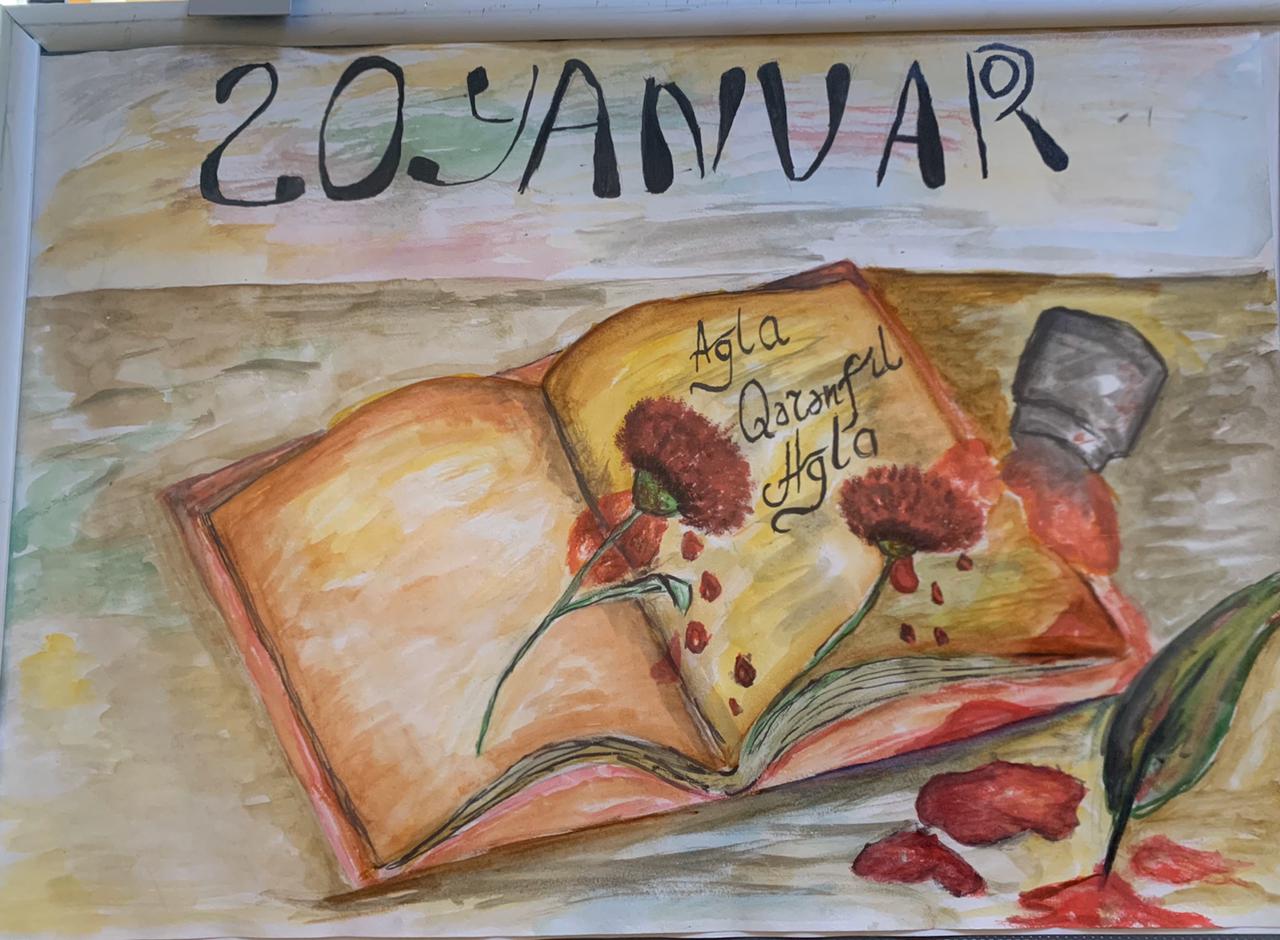 20.YANVAR
Ağla
Qərənfil
Ağla